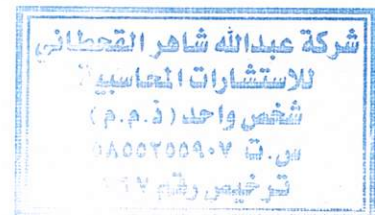 شركة عبدالله شاهر القحطاني
للاستشارات المحاسبية
شخص واحد (ذ.م.م)
س.ت ٥٨٥٥٣٥٥٩٠٧
ترخيص رقم